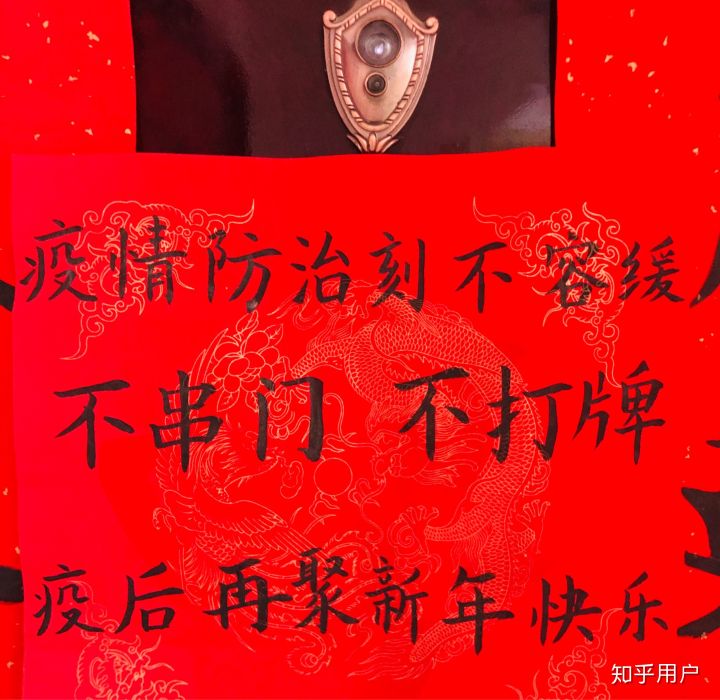 疫情防治刻不容缓
不串门 不打牌
疫后再聚新年快乐
知乎用户